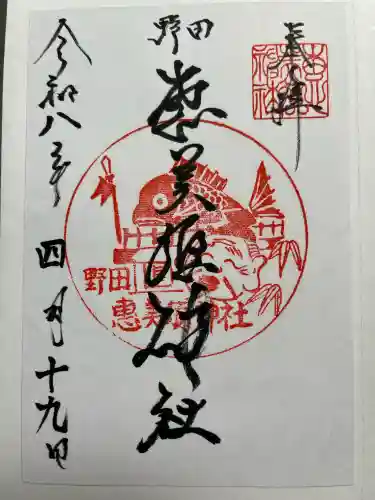 奉拝
野田
恵美須神社
野田
恵美須神社
令和八年四月十九日